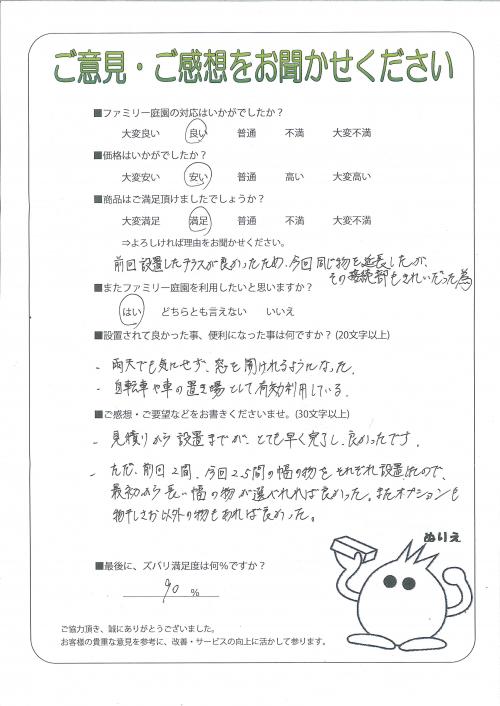 ご意見・ご感想をお聞かせください
■ファミリー庭園の対応はいかがでしたか？
大変良い 良い 普通 不満 大変不満
■価格はいかがでしたか？
大変安い 安い 普通 高い 大変高い
■商品はご満足頂けましたでしょうか？
大変満足 満足 普通 不満 大変不満
⇒よろしければ理由をお聞かせください。
前回設置したテラスが良かったため、今回同じ物を延長したが、
その接続部もきれいだった為
■またファミリー庭園を利用したいと思いますか？
はい どちらとも言えない いいえ
■設置されて良かった事、便利になった事は何ですか？(20文字以上)
- 雨天でも気にせず、窓を開けれるようになった.
- 自転車や車の置き場として有効利用している.
■ご感想・ご要望などをお書きくださいませ。(30文字以上)
- 見積りから設置までが、とても早く完了し、良かったです.
- ただ、前回2間、今回2.5間の幅の物をそれぞれ設置したので、
最初から長い幅の物が選べれれば良かった。またオプションも
物干しざお以外の物もあれば良かった。
ぬりえ
■最後に、ズバリ満足度は何%ですか？
90 %
ご協力頂き、誠にありがとうございました。
お客様の貴重な意見を参考に、改善・サービスの向上に活かして参ります。